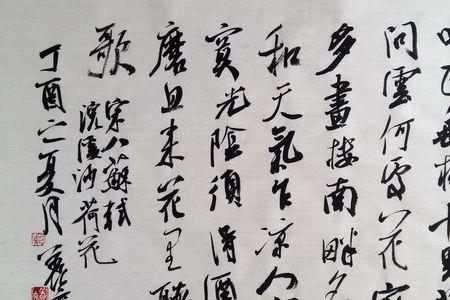 垂楊十里
問雲何處花
多畫樓南畔夕
和天氣乍凉人
寞光陰須得酒
磨且来花里聽
歌
宋人蘇軾
浣溪沙荷花
丁酉之夏月